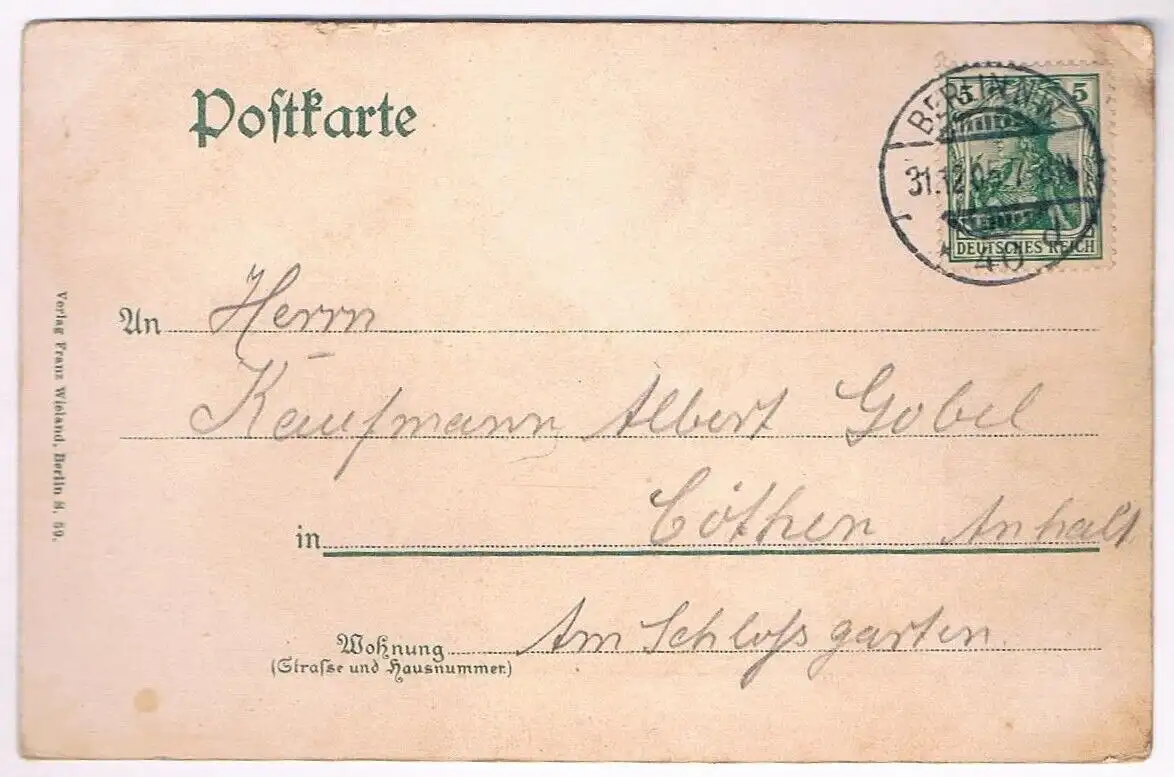 Postkarte
BERLIN N.W.
5 5
31.12.05. 7-8N.
* 40 d
DEUTSCHES REICH
An Herrn
Kaufmann Albert Gobel
in Cöthen Anhalt
Wohnung Am Schloßgarten.
(Strasse und Hausnummer.)
Verlag Franz Wieland, Berlin S. 59.